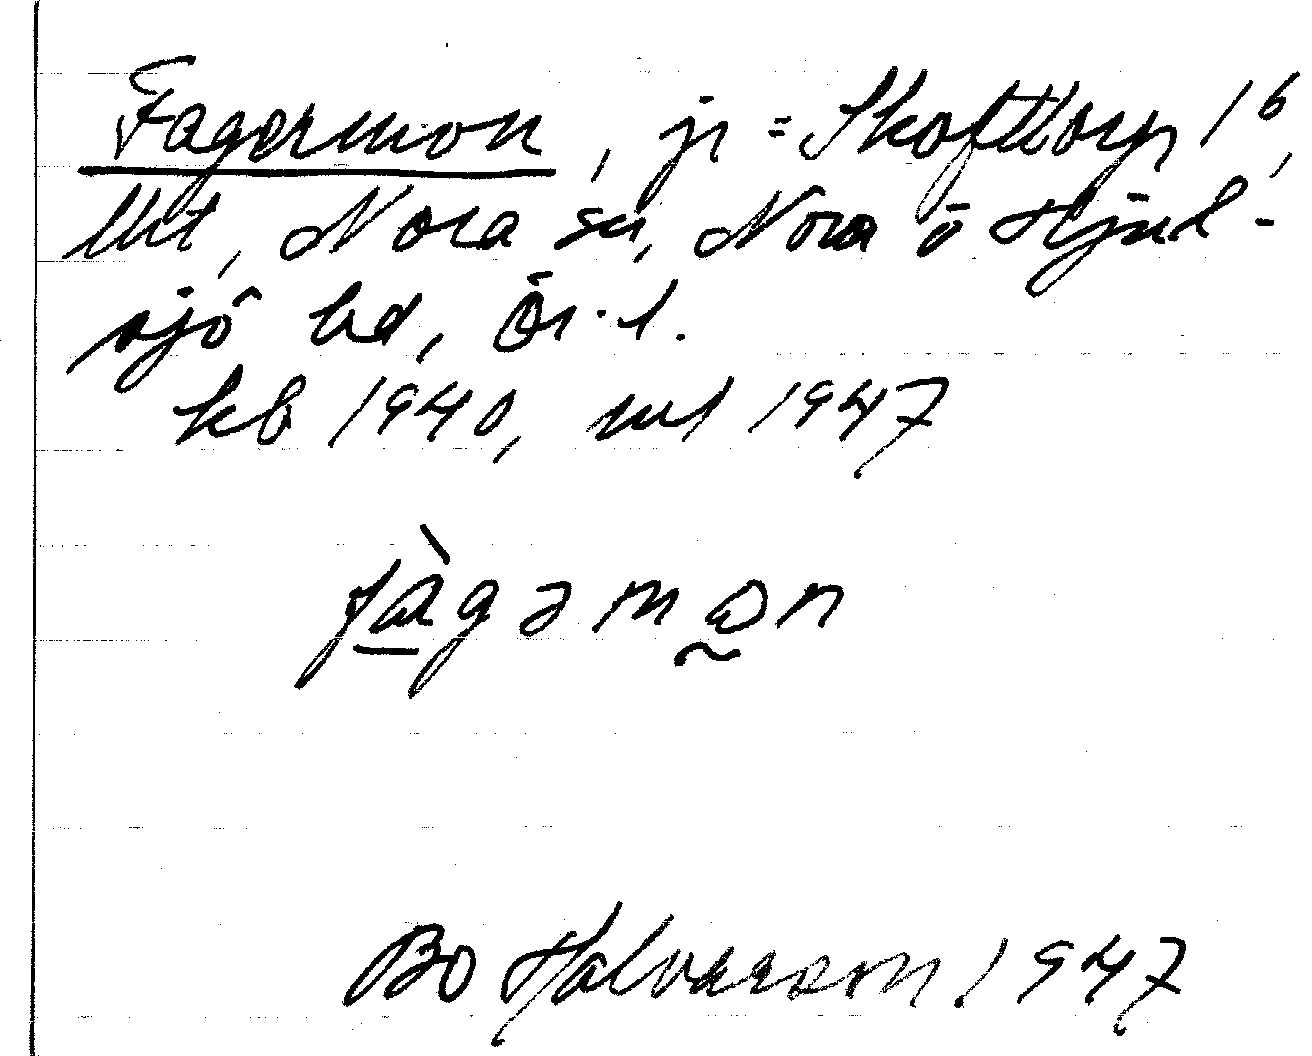 Fagermon, jr = Skofttorp 1⁶,
lht, Nora sn, Nora o Hjul-
sjö bd, Ör. l.
kb 1940, ml 1947
fàgəmɷn
Bo Halvarson 1947